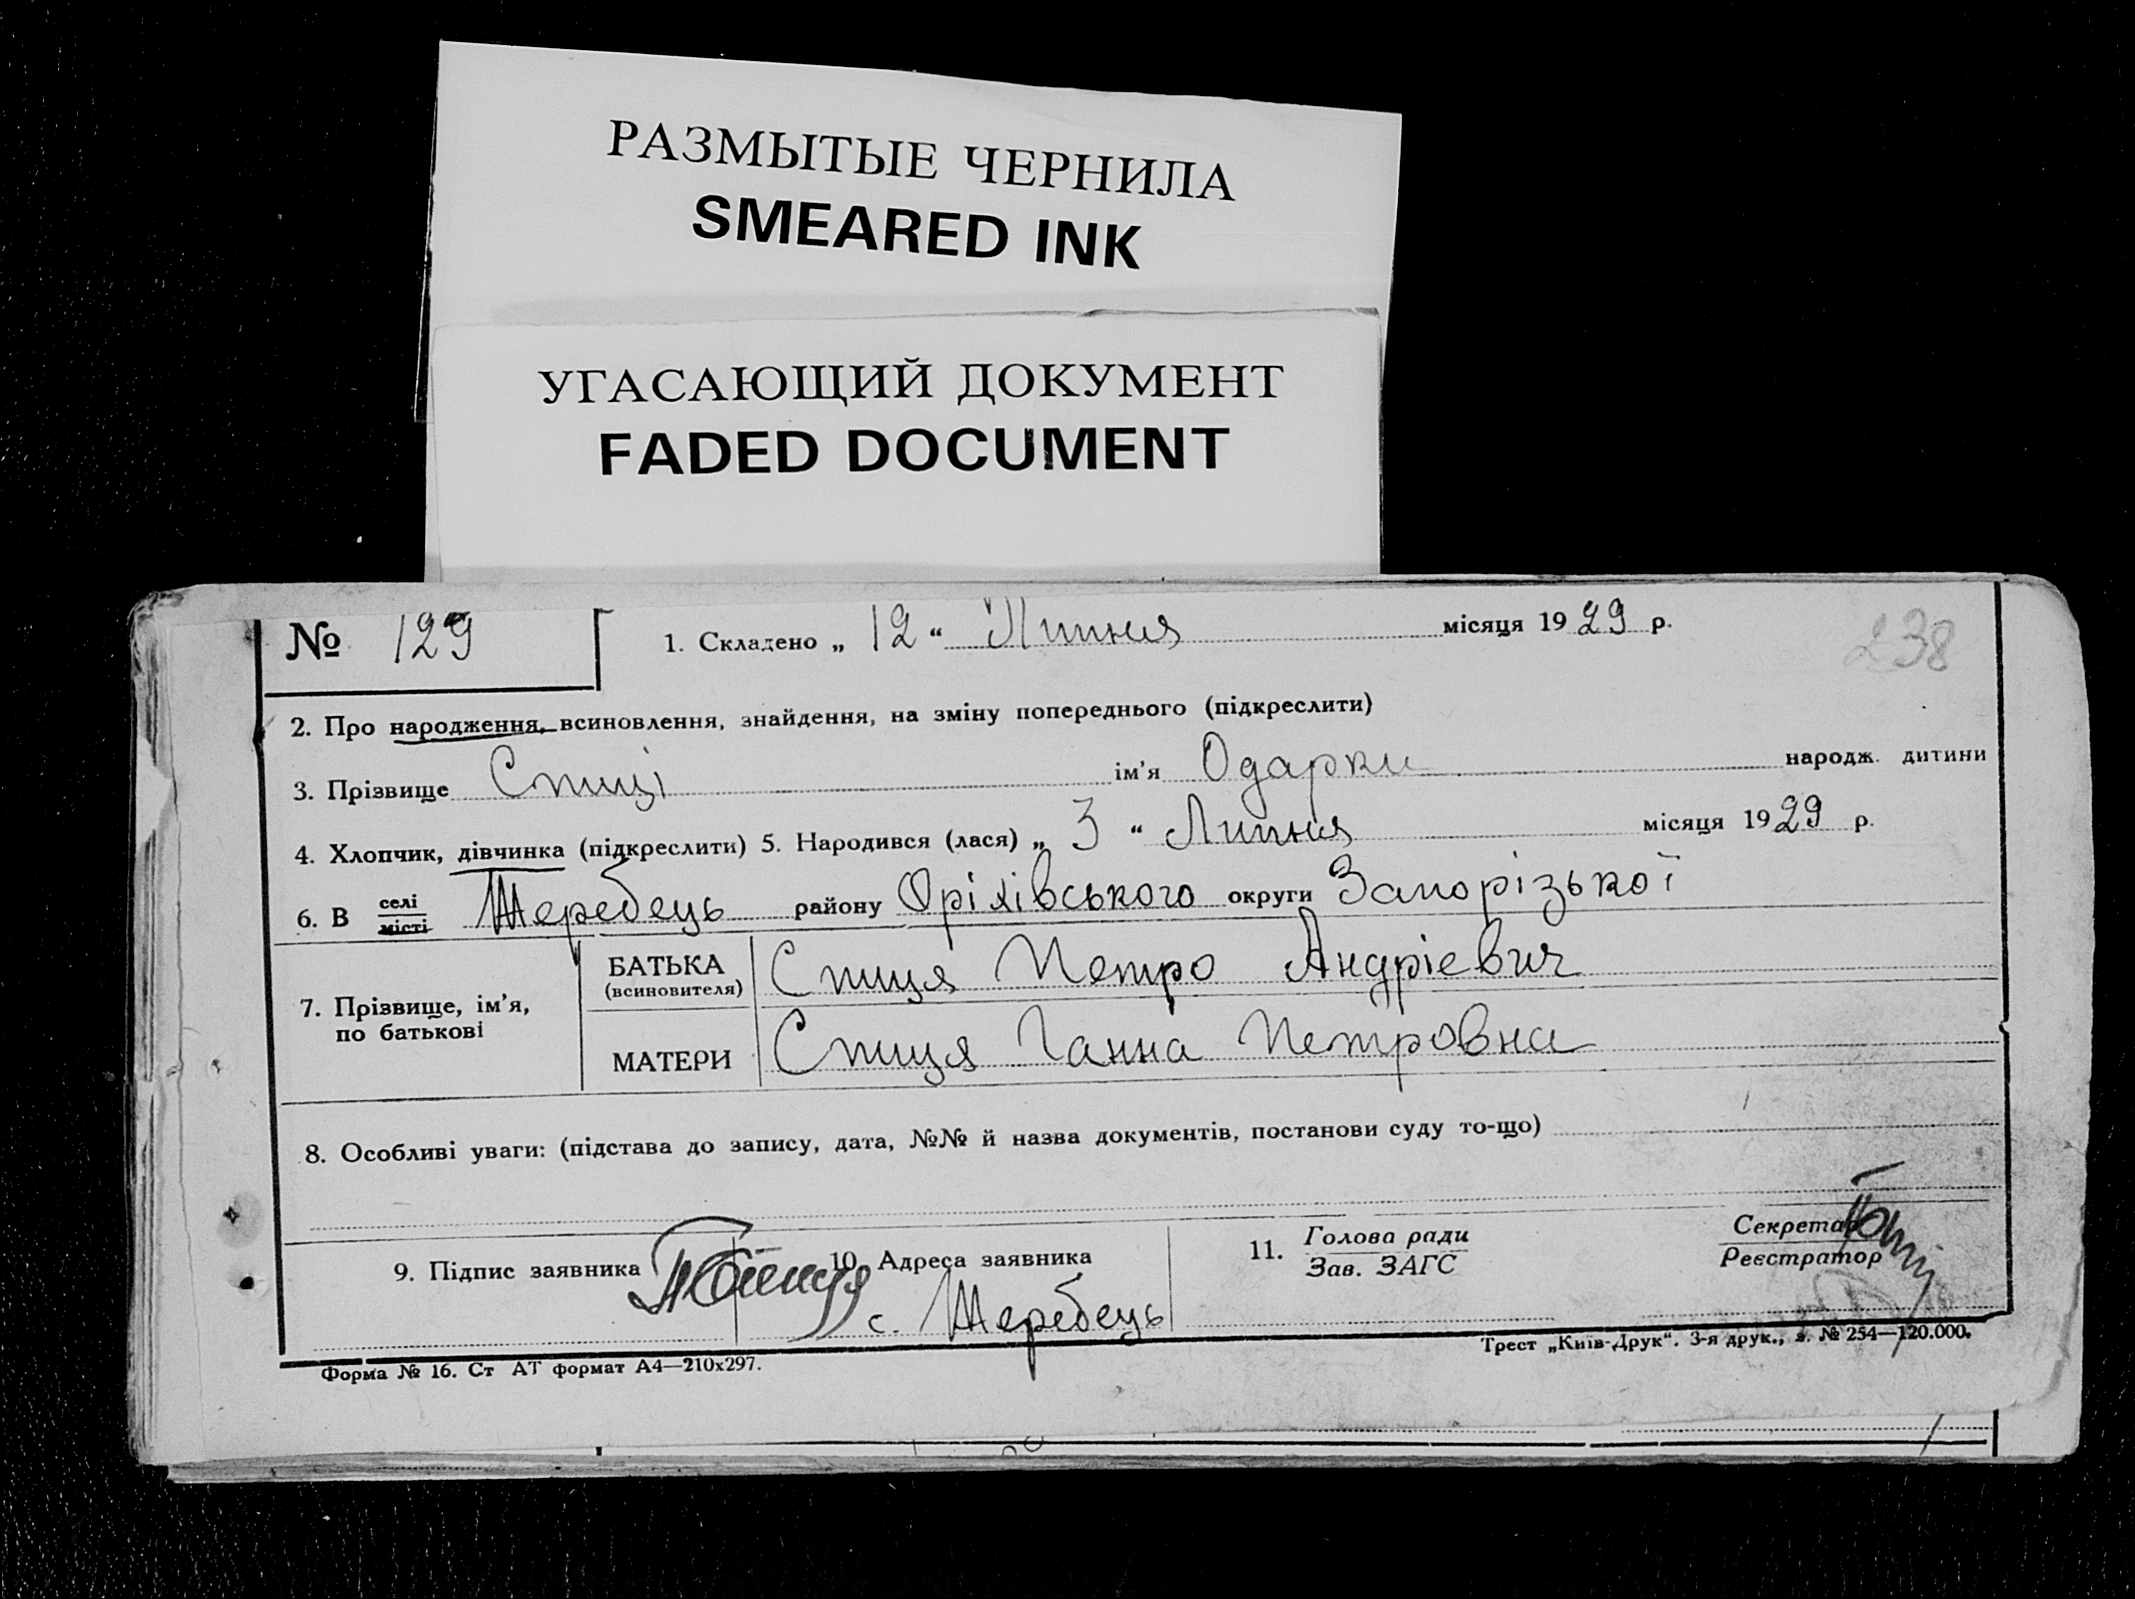 РАЗМЫТЫЕ ЧЕРНИЛА
SMEARED INK
УГАСАЮЩИЙ ДОКУМЕНТ
FADED DOCUMENT
№ 129 1. Складено „ 12 “ Липня місяця 1929 р. 238
2. Про народження, всиновлення, знайдення, на зміну попереднього (підкреслити)
3. Прізвище Спиці ім'я Одарки народж. дитини
4. Хлопчик, дівчинка (підкреслити) 5. Народився (лася) „ 3 “ Липня місяця 1929 р.
6. В селі місті Жеребець району Оріхівського округи Запорізької
7. Прізвище, ім'я, по батькові
БАТЬКА (всиновителя) Спиця Петро Андрієвич
МАТЕРИ Спиця Ганна Петровна
8. Особливі уваги: (підстава до запису, дата, №№ й назва документів, постанови суду то-що)
9. Підпис заявника ПСпиця 10. Адреса заявника
с. Жеребець
11. Голова ради
Зав. ЗАГС
Секретар
Реєстратор
Форма № 16. Ст АТ формат А4—210х297.
Трест „Київ-Друк“. 3-я друк., з. № 254—120.000.